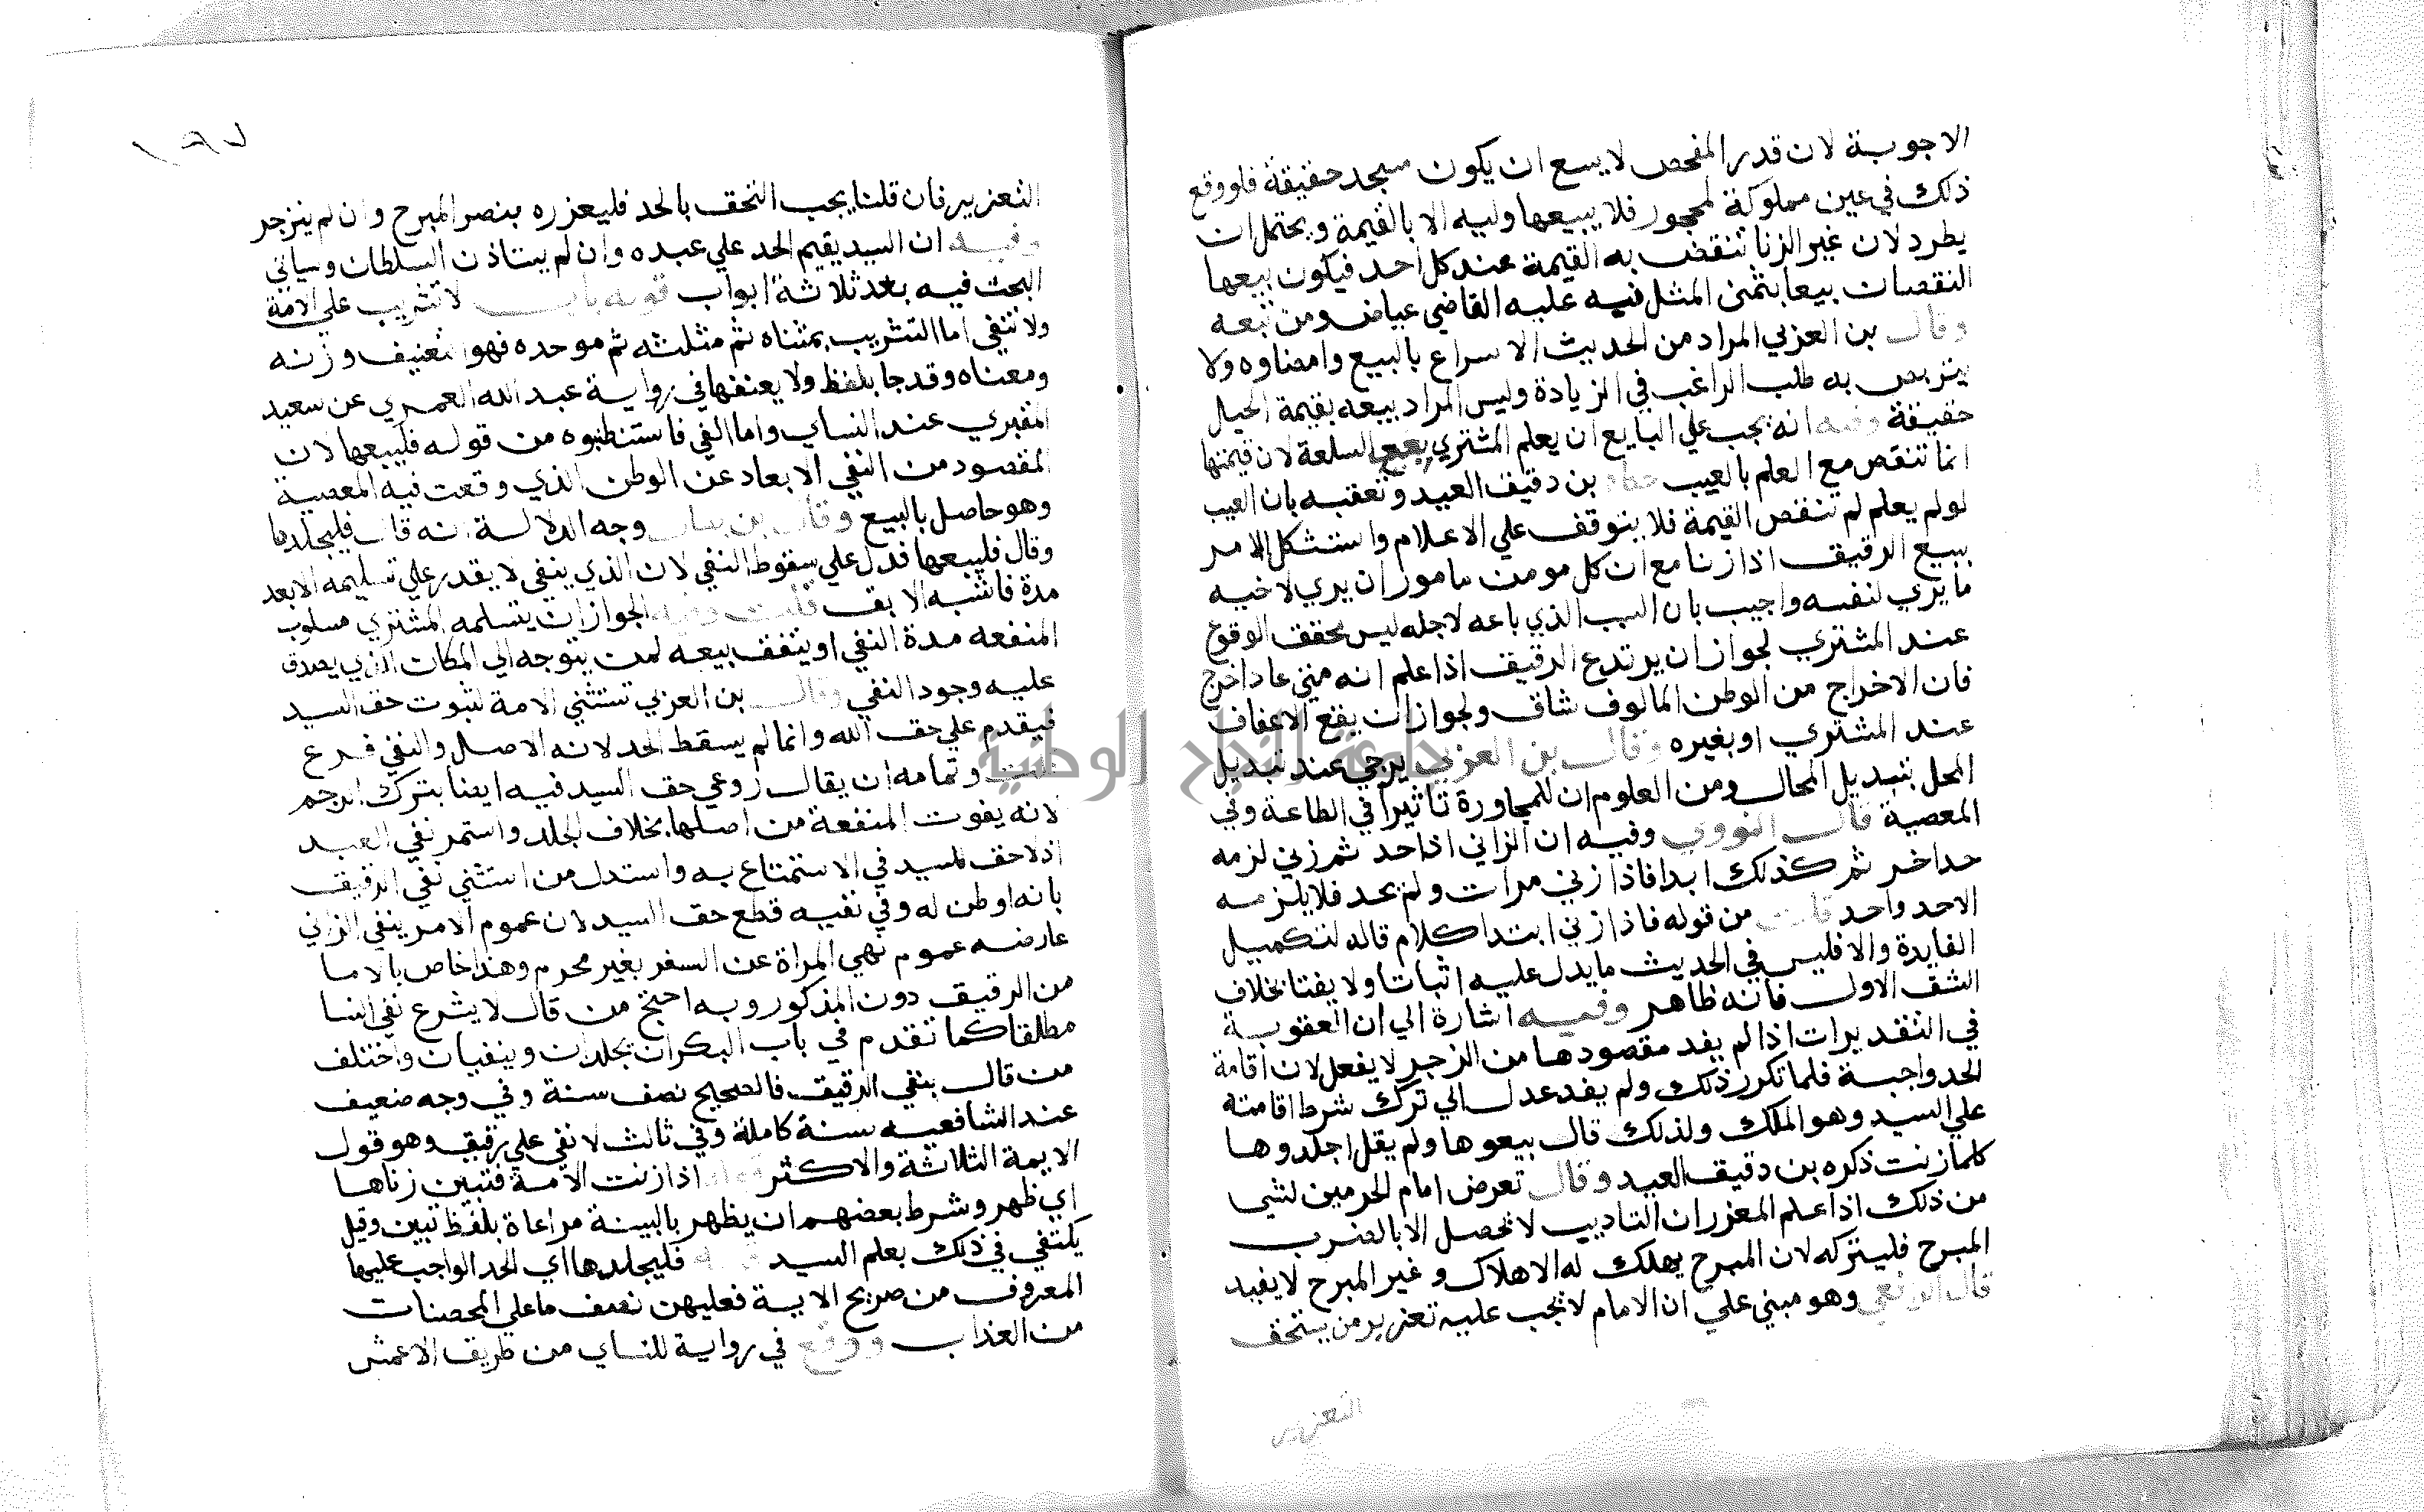 الاجوبة لان قدر المفحص لا يسع ان يكون مسجد حقيقة فلو وقع
ذلك في عين مملوكة لمحجور فلا يبيعها وليه الا بالقيمة ويحتمل ان
يطرد لان غير الزنا تنقص به القيمة عند كل احد فيكون بيعها
النقصان بيعا بثمن المثل فيه عليه القاضي عياض ومن تبعه
وقال بن العزبي المراد من الحديث الاسراع بالبيع وامضاوه ولا
يتربص به طلب الراغب في الزيادة وليس المراد بيعه بقيمة الحبل
حقيقة وفيه انه يجب علي البايع ان يعلم المشتري بعيب السلعة لان قيمتها
انما تنقص مع العلم بالعيب حكاه بن دقيق العيد وتعقبه بان العيب
لو لم يعلم لم تنقص القيمة فلا يتوقف علي الاعلام واستشكل الامر
ببيع الرقيق اذا زنا مع ان كل مومن مامور ان يري لاخيه
ما يري لنفسه واجيب بان السبب الذي باعه لاجله ليس محقق الوقوع
عند المشتري لجواز ان يرتدع الرقيق اذا علم انه متي عاد اخرج
فان الاخراج من الوطن المالوف شاق ولجواز ان يقع الاعفاف
عند المشتري او بغيره وقال بن العزبي يرجي عند تبديل
المحل بتبديل الحال ومن العلوم ان للمجاورة تاثيرا في الطاعة وفي
المعصية قال النووي وفيه ان الزاني اذا حد ثم زني لزمه
حد اخر ثم كذلك ابدا فاذا زني مرات ولم يحد فلا يلزمه
الاحد واحد قلت من قوله فاذا زني ابتدا كلام قاله لتكميل
الفايدة والا فليس في الحديث ما يدل عليه اثباتا ولا يفتا بخلاف
الشق الاول فانه ظاهر وفيه اشارة الي ان العقوبة
في التقديرات اذا لم يفد مقصودها من الزجر لا يفعل لان اقامة
الحد واجبة فلما تكرر ذلك ولم يفد عدل الي ترك شرط اقامته
علي السيد وهو الملك ولذلك قال بيعوها ولم يقل اجلدوها
كلما زنت ذكره بن دقيق العيد وقال تعرض امام الحرمين لشي
من ذلك اذا علم المعزر ان التاديب لا يحصل الا بالضرب
المبرح فليتركه لان المبرح يهلك له الاهلاك وغير المبرح لا يفيد
قال الرافعي وهو مبني علي ان الامام لا يجب عليه تعزير من يستحق
التعزير
١٩٧
التعزير فان قلنا يجب التحق بالحد فليعزره بنصر المبرح وان لم ينزجر
وفيه ان السيد يقيم الحد علي عبده وان لم يستاذن السلطان وسياتي
البحث فيه بعد ثلاثة ابواب قوله باب لا تثريب علي الامة
ولا تنفي اما التثريب بمثناه ثم مثلثه ثم موحده فهو التعنيف وزنه
ومعناه وقد جا بلفظ ولا يعنفها في رواية عبد الله العمري عن سعيد
المقبري عند النساي واما النفي فاستنطبوه من قوله فليبعها لان
المقصود من النفي الابعاد عن الوطن الذي وقعت فيه المعصية
وهو حاصل بالبيع وقال بن بطال وجه الدلالة انه قال فليجلدها
وقال فليبعها فدل علي سقوط النفي لان الذي ينفي لا يقدر علي تسليمه الا بعد
مدة فاشبه الابق قلت وفيه الجواز ان يتسلمه المشتري مسلوب
المنفعه مدة النفي او يتفق بيعه لمن يتوجه الي المكان الذي يصدق
عليه وجود النفي وقال بن العزبي تستثني الامة لثبوت حق السيد
فيقدم علي حق الله وانما لم يسقط الحد لانه الاصل والنفي فرع
قلت وتمامه ان يقال روعي حق السيد فيه ايضا بترك الرجم
لانه يفوت المنفعة من اصلها بخلاف الجلد واستمر نفي العبد
اذ لا حق للسيد في الاستمتاع به واستدل من استثني نفي الرقيق
بانه لا وطن له وفي نفيه قطع حق السيد لان عموم الامر ينفي الزاني
عارضه عموم نهي المراة عن السفر بغير محرم وهذا خاص بالاما
من الرقيق دون المذكور وبه احتج من قال لا يشرع نفي النسا
مطلقا كما تقدم في باب البكران يجلدان وينفيان واختلف
من قال بنفي الرقيق فالصحيح نصف سنة وفي وجه ضعيف
عند الشافعيه سنة كاملة وفي ثالث لا نفي علي رقيق وهو قول
الايمة الثلاثة والاكثر قوله اذا زنت الامة فتبين زناها
اي ظهر وشرط بعضهم ان يظهر بالبينة مراعاة بلفظ تبين وقيل
يكتفي في ذلك بعلم السيد قوله فليجلدها اي الحد الواجب عليها
المعروف من صريح الاية فعليهن نصف ما علي المحصنات
من العذاب ووقع في رواية للنساي من طريق الاعمش
جامعة النجاح الوطنية